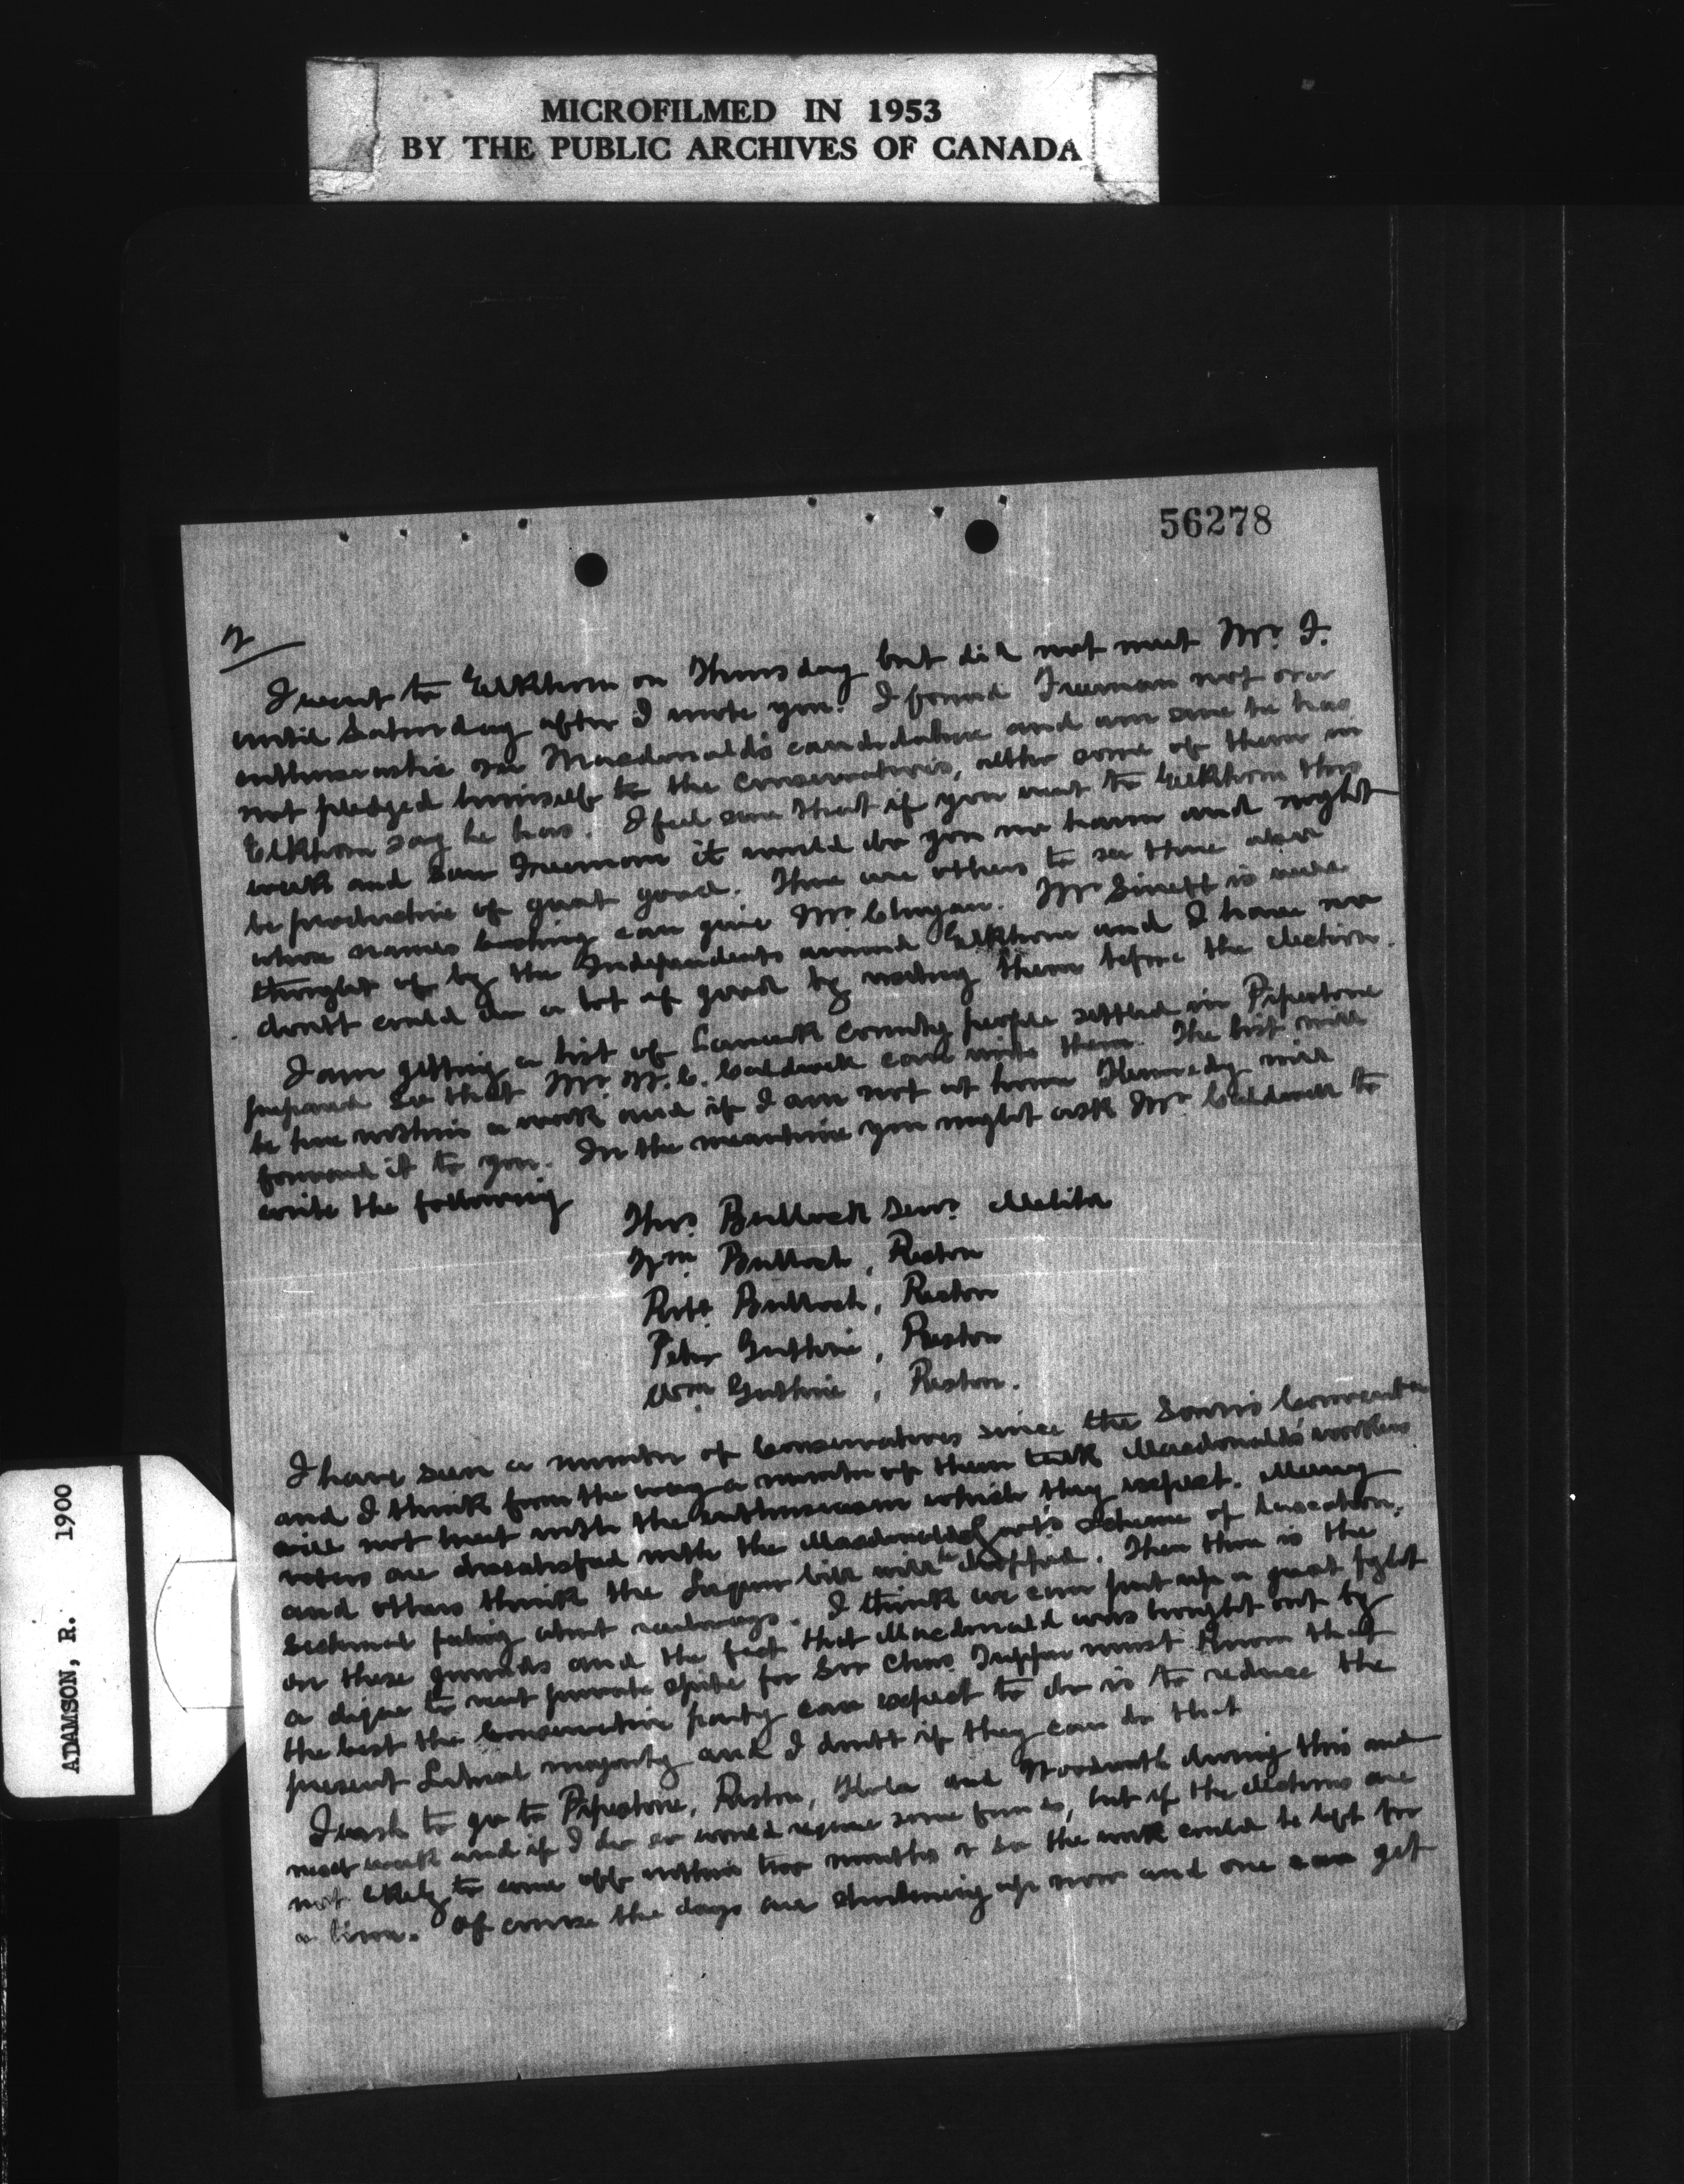 MICROFILMED IN 1953
BY THE PUBLIC ARCHIVES OF CANADA
56278
2
I went to Elkhorn on Thursday but did not meet Mr. F.
until Saturday after I wrote you. I found Freeman not over
enthusiastic over Macdonald's candidature and am sure he has
not pledged himself to the Conservatives, altho some of them in
Elkhorn say he has. I feel sure that if you went to Elkhorn this
week and saw Freeman it would do you no harm and might
be productive of great good. There are others to see there also
whose names Cushing can give Mr. . Mr is well
thought of by the Independents around Elkhorn and I have no
doubt could do a lot of good by visiting them before the election.
I am getting a list of Lanark County people settled in Pipestone
prepared so that Mr. W. C. Caldwell can write them. The list will
be here within a week and if I am not at home Kennedy will
forward it to you. In the meantime you might ask Mr. Caldwell to
write the following
Thos. Bullock Senr. Melita
Wm. Bullock, Reston
Robt. Bullock, Reston
Peter Guthrie, Reston
Wm. Guthrie, Reston.
I have seen a number of Conservatives since the Souris Convention
and I think from the way a number of them talk Macdonald's workers
will not meet with the enthusiasm which they expect. Many
voters are dissatisfied with the Macdonald Govt's scheme of taxation,
and others think the Liquor bill will be dropped. Then there is the
sectional feeling about railways. I think we can put up a great fight
on these grounds and the fact that Macdonald was brought out by
a clique to vent private spite for Sir Chas. Tupper must know that
the best the Conservative party can expect to do is to reduce the
present Liberal majority and I doubt if they can do that
I wish to go to Pipestone, Reston, and Woodnorth during this and
next week and if I do so would require some funds, but if the elections are
not likely to come off within two months or so the work could be left for
a time. Of course the days are shortening up now and one can get
ADAMSON, R. 1900